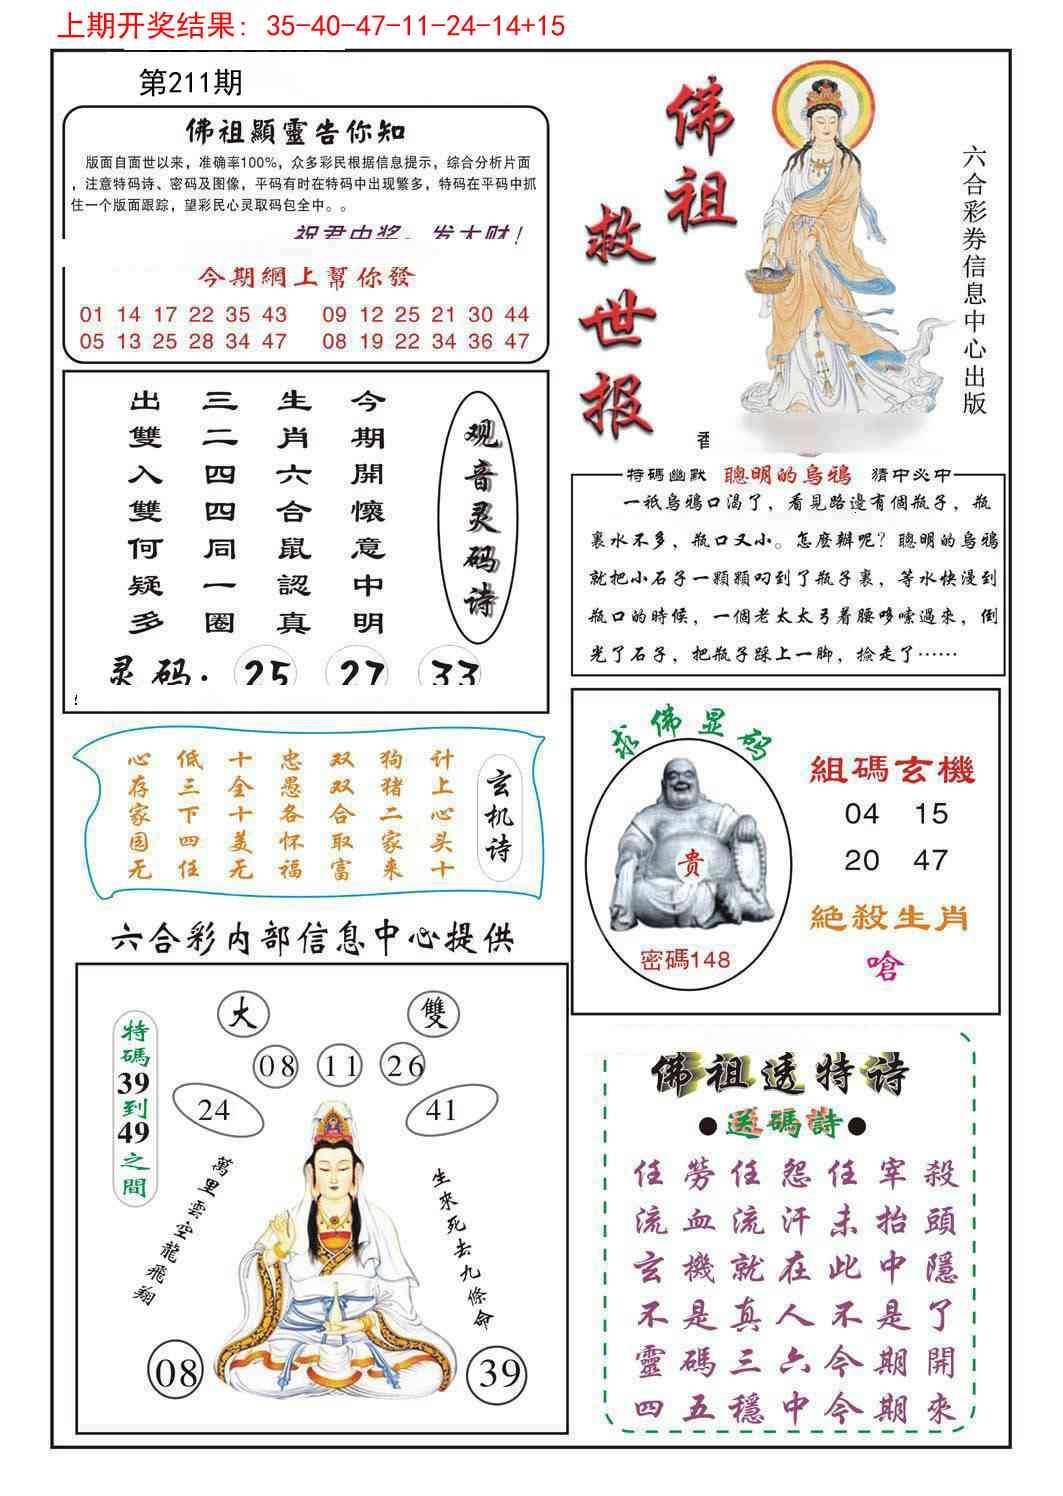 上期开奖结果: 35-40-47-11-24-14+15
第211期
佛祖顯靈告你知
版面自面世以来，准确率100%，众多彩民根据信息提示，综合分析片面
，注意特码诗、密码及图像，平码有时在特码中出现繁多，特码在平码中抓
住一个版面跟踪，望彩民心灵取码包全中。。
祝君中奖，发大财！
今期網上幫你發
01 14 17 22 35 43 09 12 25 21 30 44
05 13 25 28 34 47 08 19 22 34 36 47
佛祖
救世报
六合彩券信息中心出版
香
观音灵码诗
今期開懷意中明
生肖六合鼠認真
三二四四同一圈
出雙入雙何疑多
灵码: 25 27 33
特碼幽默 聰明的烏鴉 猜中必中
一衹烏鴉口渴了，看見路邊有個瓶子，瓶
裏水不多，瓶口又小。怎麼辦呢？聰明的烏鴉
就把小石子一顆顆叼到了瓶子裏，等水快漫到
瓶口的時候，一個老太太弓着腰哆嗦過來，倒
光了石子，把瓶子踩上一脚，撿走了……
玄机诗
计上心头十
狗猪二家来
双双合取富
忠愚各怀福
十全十美无
低三下四任
心存家园无
求佛显码
贵
密碼148
組碼玄機
04 15
20 47
絕殺生肖
嗆
六合彩内部信息中心提供
特碼39到49之間
大 雙
08 11 26
24 41
萬里雲空龍飛翔
生來死去九條命
08 39
佛祖透特诗
●送碼詩●
任勞任怨任宰殺
流血流汗未抬頭
玄機就在此中隱
不是真人不是了
靈碼三六今期開
四五穩中今期來